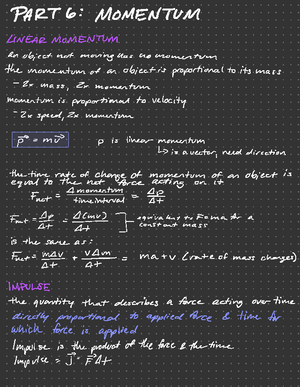 PART 6: MOMENTUM
LINEAR MOMENTUM
An object not moving has no momentum
the momentum of an object is proportional to its mass
- 2x mass, 2x momentum
momentum is proportional to velocity
- 2x speed, 2x momentum
p⃗ = mv⃗ p is linear momentum
↳ is a vector, need direction
the time rate of change of momentum of an object is
equal to the net force acting on it
Fnet = Δmomentum / time interval = Δp / Δt
Fnet = Δp / Δt = Δ(mv) / Δt ] equivalent to F=ma for a
constant mass
is the same as:
Fnet = mΔv / Δt + vΔm / Δt = ma + v (rate of mass changes)
IMPULSE
the quantity that describes a force acting over time
directly proportional to applied force & time for
which force is applied
Impulse is the product of the force & the time
Impulse = J⃗ = F⃗Δt